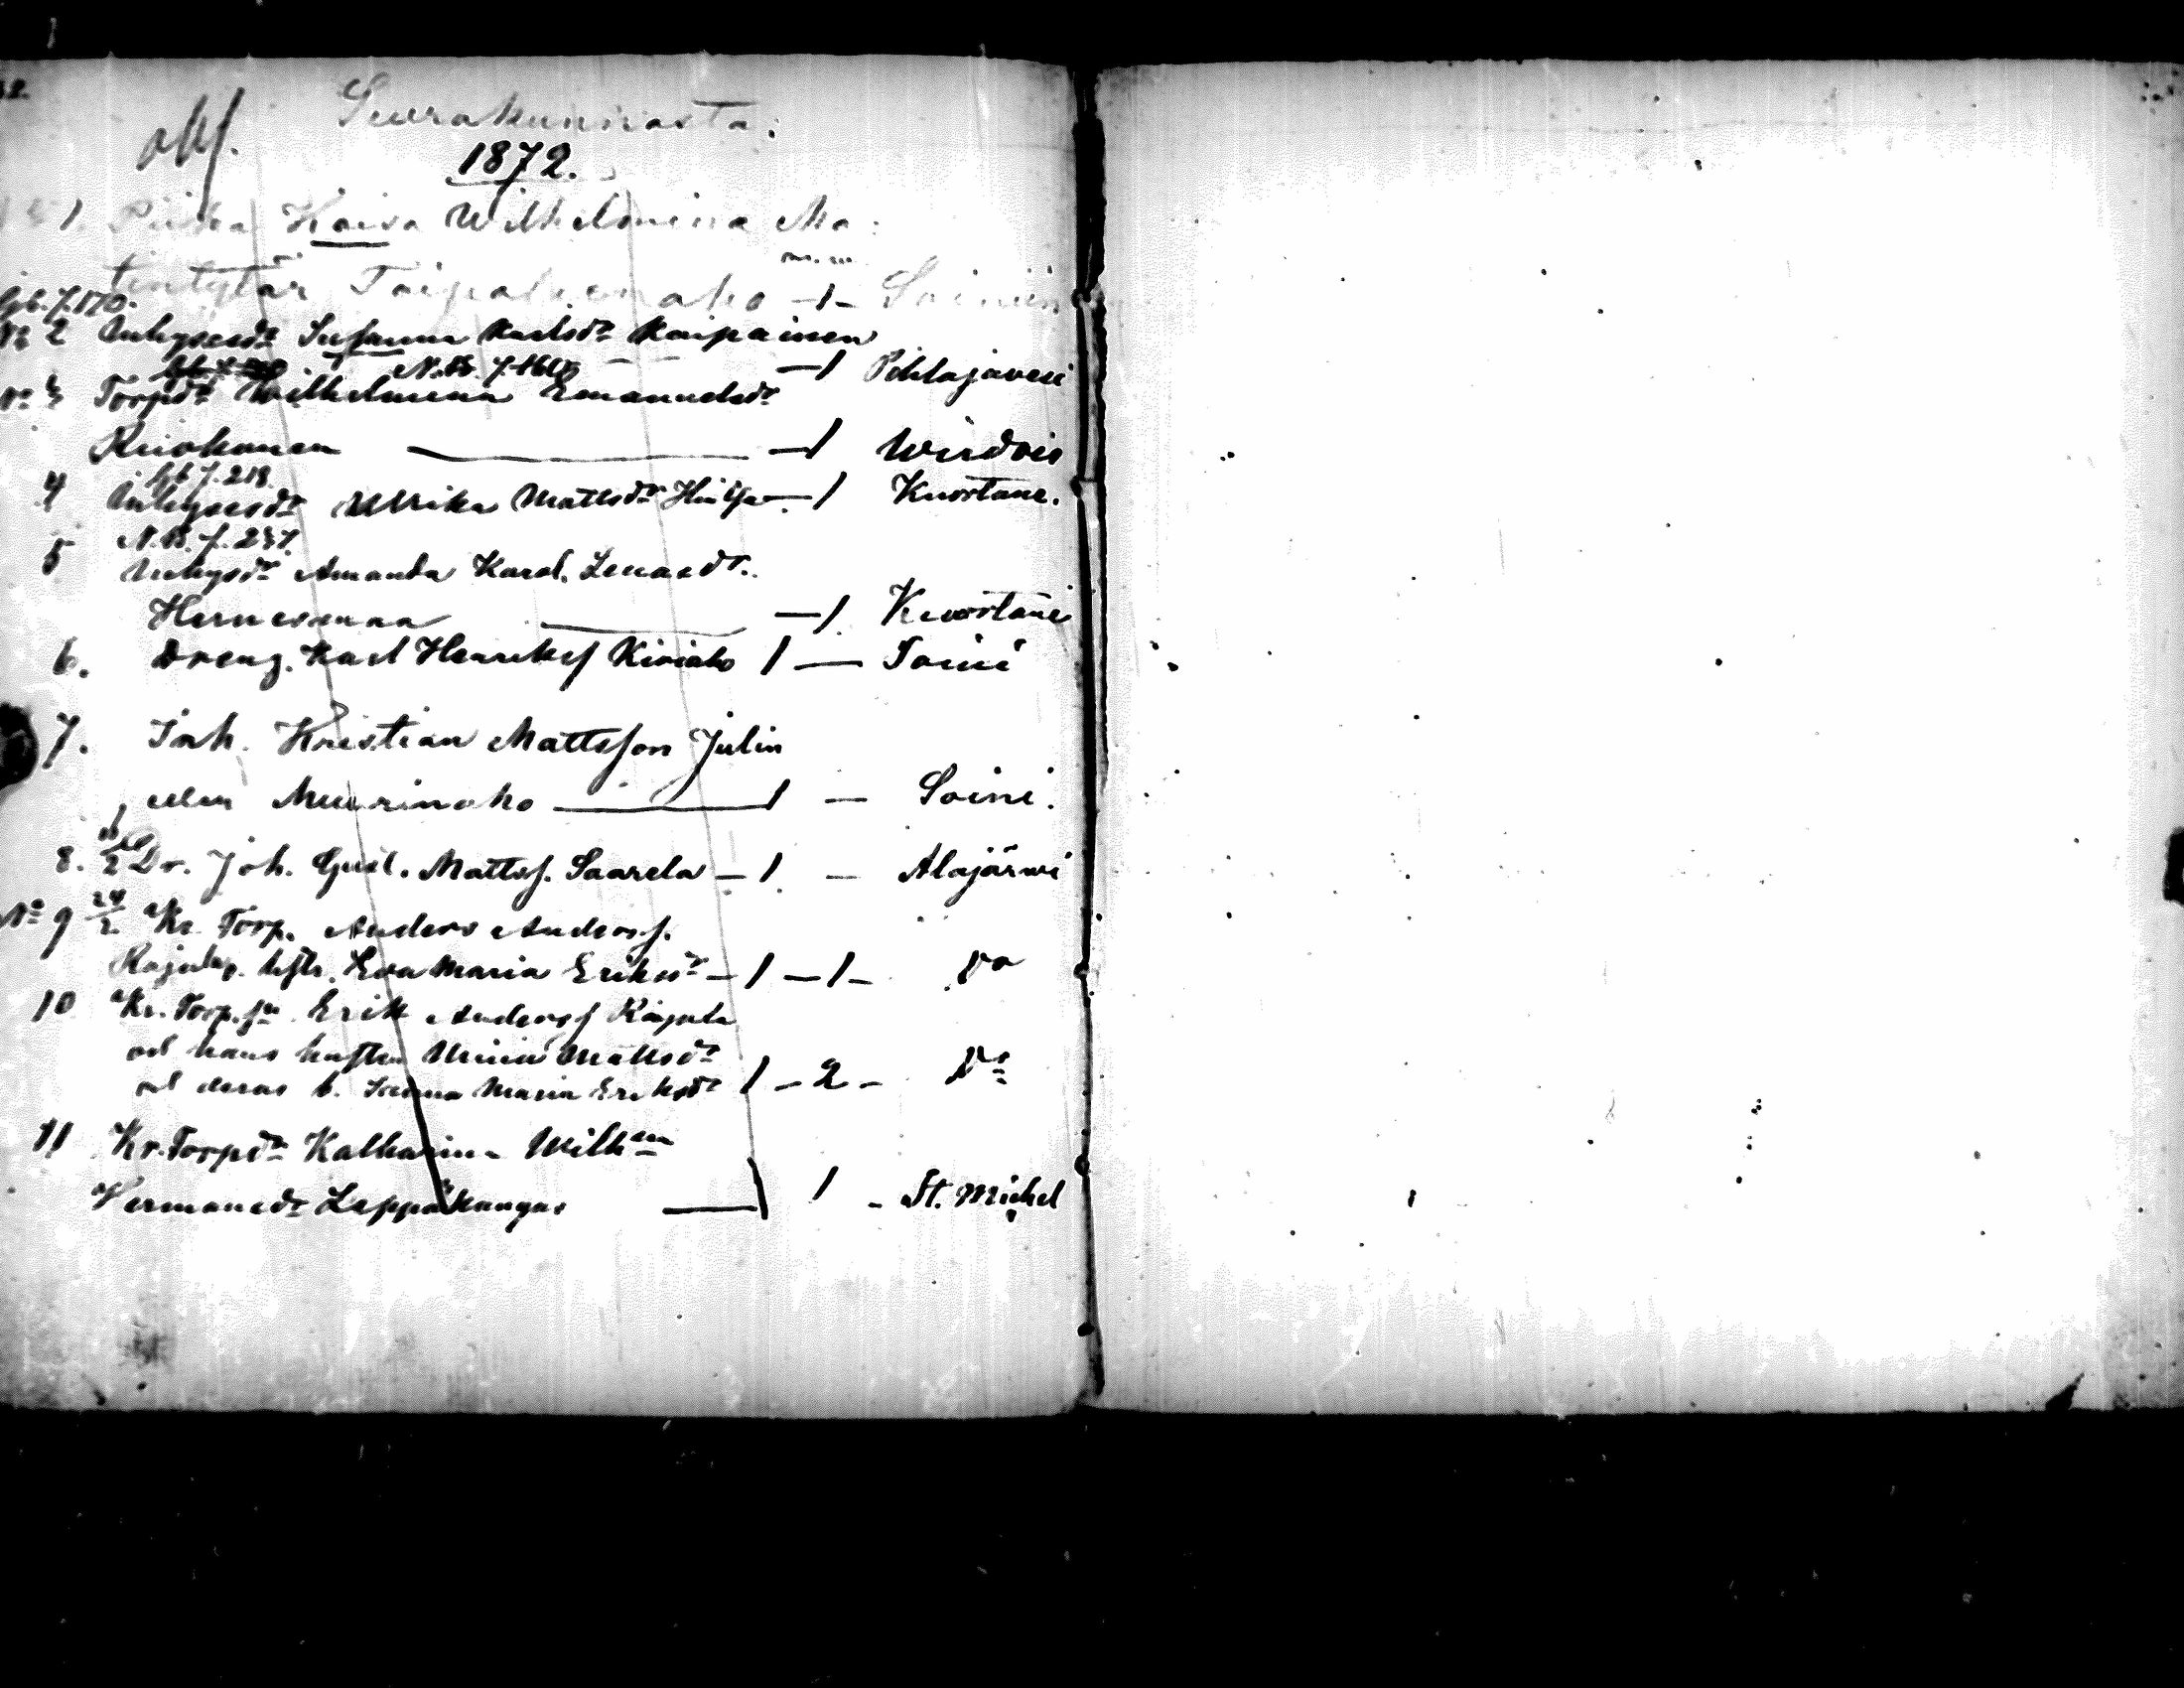 Seurakunnasta.
1872.
1. Piika Kaisa Wilhelmina Ma:
tintytär Taipaleenaho -1- Soiniin
N:o 2 Inhysesdr Susanna Karlsdr Kaipainen
N.B. f. —1 Pihlajavesi
N:o 3 Torpdr Wilhelmina Emanuelsdr
Ruokonen —1 Wirdois
f. 218.
4 Inhysesdr Ulrika Mattsdr —1 Kuortane.
N.B. f. 237.
5 Inhysdr Amanda Karol.
Hernesmaa —1. Kuortane
6. Dreng. Karl Henriksf Kiviaho 1 — Soini
7. Inh. Kristian Mattsson Julin
eller Muurinaho — 1 — Soini.
8. Dr. Joh. Gust. Mattsf. Saarela — 1. — Alajärwi
N:o 9 24/2 Kr. Torp. Anders Andersf.
hstr. Eva Maria Eriksdr — 1 — 1 — Do
10 Kr. Torp. sn Erik Andersf Rajala
och hans hustru Miina Mattsdr
och deras b. Sanna Maria Eriksdr 1 — 2 — Do
11 Kr. Torpdr Katharina Wilhna
Hermansdr Leppäkangas — 1 - St. Michel